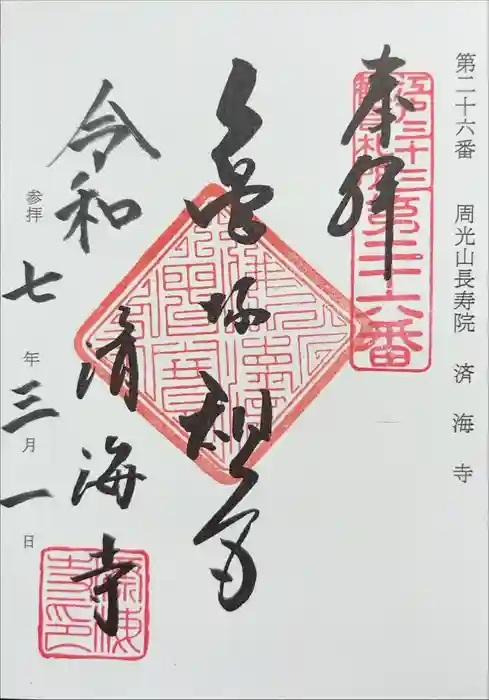 第二十六番 周光山長寿院 済海寺
奉拝
第二十六番
亀塚観音
済海寺
令和
参拝 七年三月一日